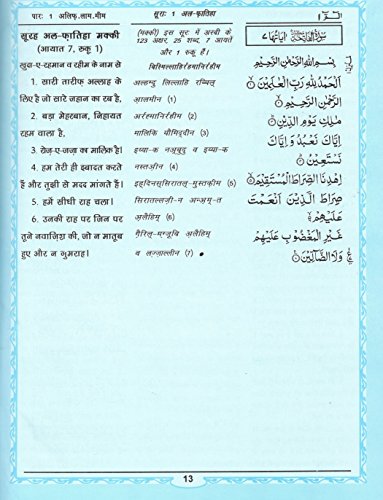 पारः 1 अलिफ़.लाम.मीम
सूरः 1 अल-फ़ातिहा
الٓمّٓ ١
सूरह अल-फ़ातिहा मक्की
(आयात 7, रुकू 1)
ख़ुदा-ए-रहमान व रहीम के नाम से
1. सारी तारीफ़ अल्लाह के
लिए है जो सारे जहान का रब है,
2. बड़ा मेहरबान, निहायत
रहम वाला है,
3. रोज़-ए-जज़ा का मालिक है।
4. हम तेरी ही इबादत करते
हैं और तुझी से मदद मांगते हैं।
5. हमें सीधी राह चला।
6. उनकी राह पर जिन पर
तूने नवाज़िश की, जो न मातूब
हुए और न गुमराह।
(मक्की) इस सूरः में अरबी के
123 अक्षर, 25 शब्द, 7 आयतें
और 1 रुकू हैं।
बिस्मिल्लाहिर्रहमानिर्रहीम
अल्हम्दु लिल्लाहि रब्बिल्
आ़लमीन (1)
अर्रह्मानिर्रहीम (2)
मालिकि यौमिद्दीन (3)
इय्या-क नअ़्बुदु व इय्या-क
नस्तअ़ीन (4)
इह्दिनस्सिरातल्-मुस्तक़ीम (5)
सिरातल्लज़ी-न अन्अ़म्-त
अ़लैहिम् (6)
ग़ैरिल्-मग़्ज़ूबि अ़लैहिम्
व लज़्ज़ाल्लीन (7)
بِسْمِ اللّٰهِ الرَّحْمٰنِ الرَّحِيْمِ
اَلْحَمْدُ لِلّٰهِ رَبِّ الْعٰلَمِيْنَ ۝
الرَّحْمٰنِ الرَّحِيْمِ ۝
مٰلِكِ يَوْمِ الدِّيْنِ ۝
اِيَّاكَ نَعْبُدُ وَ اِيَّاكَ
نَسْتَعِيْنُ ۝
اِهْدِنَا الصِّرَاطَ الْمُسْتَقِيْمَ ۝
صِرَاطَ الَّذِيْنَ اَنْعَمْتَ
عَلَيْهِمْ ۝
غَيْرِ الْمَغْضُوْبِ عَلَيْهِمْ
وَلَا الضَّآلِّيْنَ ۝
13